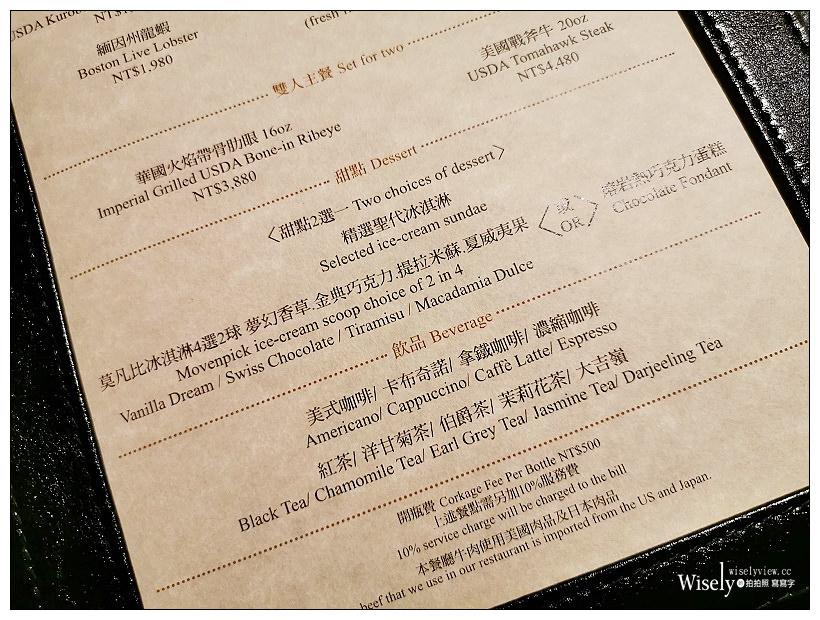 USDA
緬因州龍蝦
Boston Live Lobster
NT$1,980
(fresh
雙人主餐 Set for two
美國戰斧牛 20oz
USDA Tomahawk Steak
NT$4,480
華國火焰帶骨肋眼 16oz
Imperial Grilled USDA Bone-in Ribeye
NT$3,880
甜點 Dessert
〈甜點2選一 Two choices of dessert〉
精選聖代冰淇淋
Selected ice-cream sundae
〈或 OR〉
熔岩熱巧克力蛋糕
Chocolate Fondant
莫凡比冰淇淋4選2球 夢幻香草.金典巧克力.提拉米蘇.夏威夷果
Movenpick ice-cream scoop choice of 2 in 4
Vanilla Dream / Swiss Chocolate / Tiramisu / Macadamia Dulce
飲品 Beverage
美式咖啡/ 卡布奇諾/ 拿鐵咖啡/ 濃縮咖啡
Americano/ Cappuccino/ Caffè Latte/ Espresso
紅茶/ 洋甘菊茶/ 伯爵茶/ 茉莉花茶/ 大吉嶺
Black Tea/ Chamomile Tea/ Earl Grey Tea/ Jasmine Tea/ Darjeeling Tea
開瓶費 Corkage Fee Per Bottle NT$500
上述餐點需另加10%服務費
10% service charge will be charged to the bill
本餐廳牛肉使用美國肉品及日本肉品
beef that we use in our restaurant is imported from the US and Japan.
wiselyview.cc
Wisely 拍拍照 寫寫字